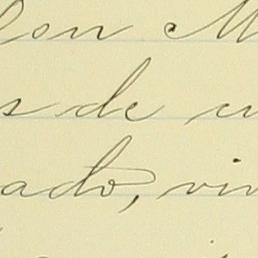 Don M
s de u
ado, viv